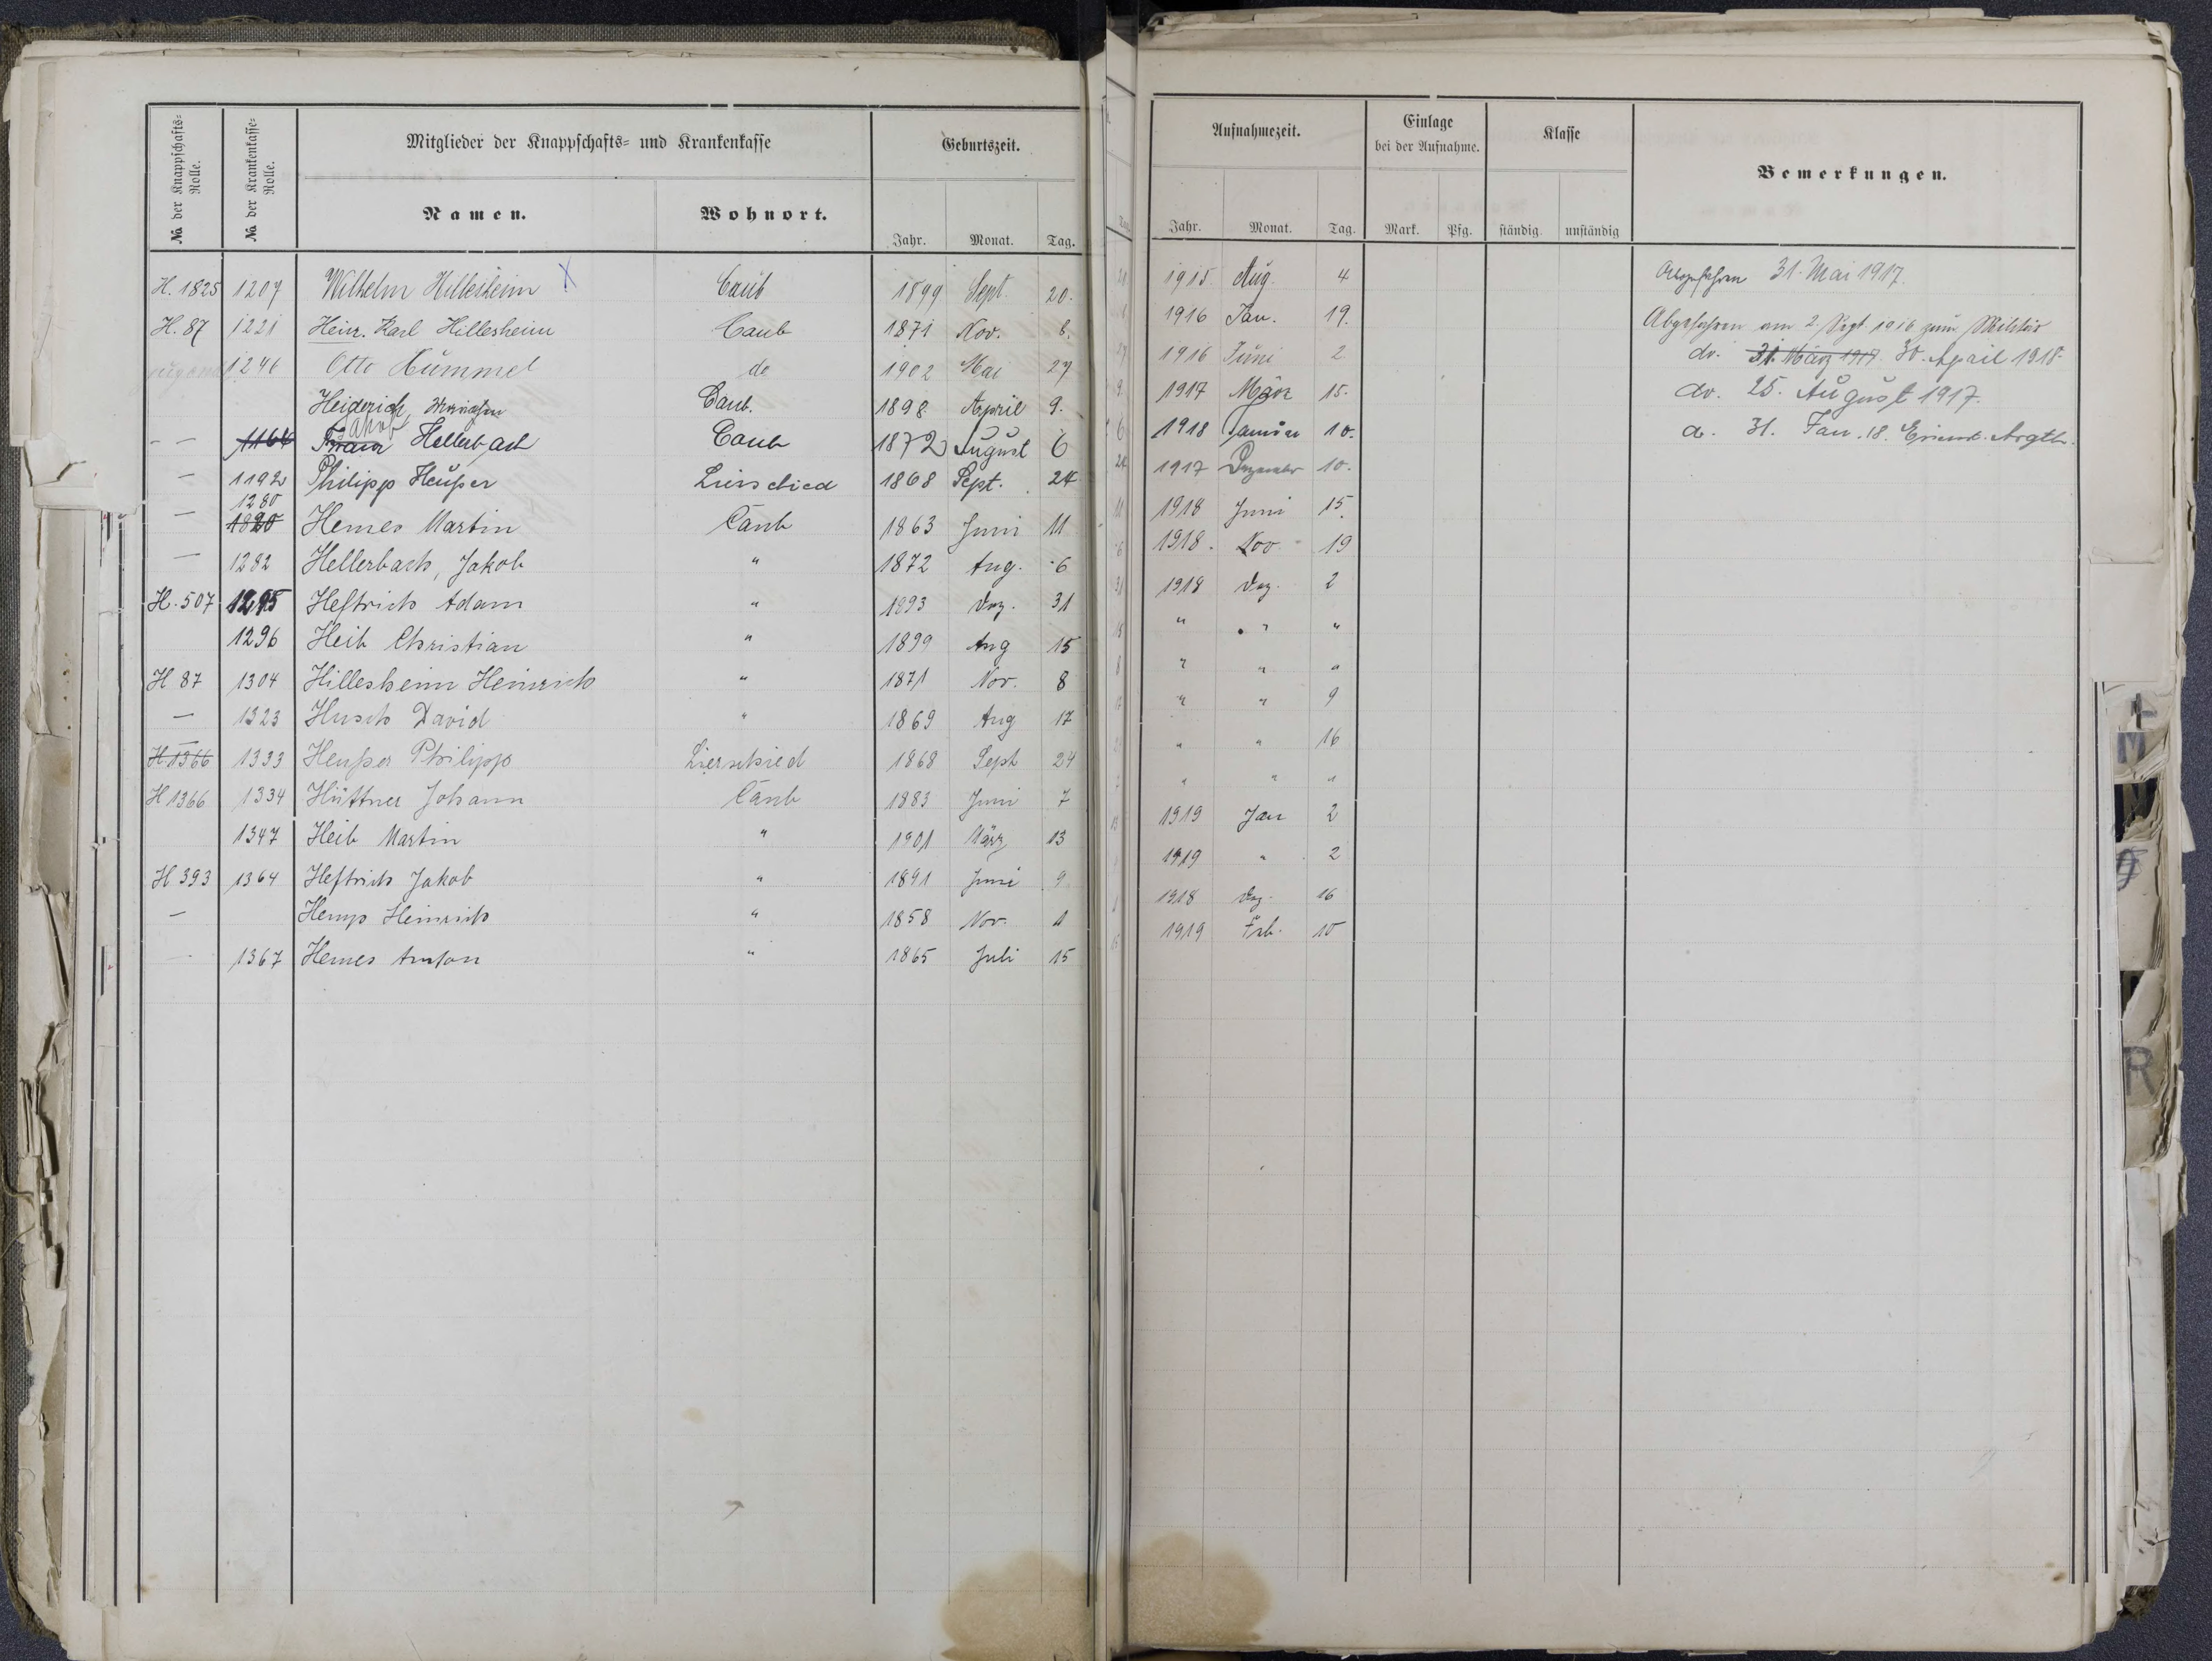 № der Knappschafts-Rolle.
№ der Krankenkasse-Rolle.
Mitglieder der Knappschafts- und Krankenkasse
Geburtszeit.
Namen.
Wohnort.
Jahr. Monat. Tag.
H. 1825 1207 Wilhelm Hillesheim X Caub 1899 Sept. 20.
H. 87 1221 Heinr. Karl Hillesheim Caub 1871 Nov. 8.
1246 Otto Hummel do 1902 Mai 27
Heiderich, Caub. 1898 April 9.
- - 1166 Franz Jakob Hellerbach Caub 1872 August 6
— 1192 Philipp Heußer Lierschied 1868 Sept. 24
— 1280 1820 Hemes Martin Caub 1863 Juni 11
— 1282 Hellerbach, Jakob " 1872 Aug. 6
H. 507 1295 Heftrich Adam " 1893 Dez. 31
1296 Heib Christian " 1899 Aug 15
H 87 1304 Hillesheim Heinrich " 1871 Nov. 8
— 1323 Husch David " 1869 Aug 17
H 1366 1333 Heußer Philipp Lierschied 1868 Sept 24
H 1366 1334 Hüttner Johann Caub 1883 Juni 7
1347 Heib Martin " 1901 März 13
H 393 1364 Heftrich Jakob " 1891 Juni 9
— Hemp Heinrich " 1858 Nov. 1
1367 Hemes Anton " 1865 Juli 15
Aufnahmezeit.
Einlage bei der Aufnahme.
Klasse
Bemerkungen.
Jahr. Monat. Tag. Mark. Pfg. ständig. unständig
1915 Aug. 4 Abgefahren 31. Mai 1917.
1916 Jan. 19. Abgefahren am 2. Sept. 1916 zum Militär
1916 Juni 2 do. 31. März 1917. 30. April 1918.
1917 März 15. do. 25. August 1917.
1918 Januar 10. a. 31. Jan. 18.
1917 Dezember 10.
1918 Juni 15.
1918. Nov 19
1918 Dez. 2
" " "
" " "
" " 9
" " 16
" " "
1919 Jan 2
1919 " 2
1918 Dez. 16
1919 Feb. 10
M
R